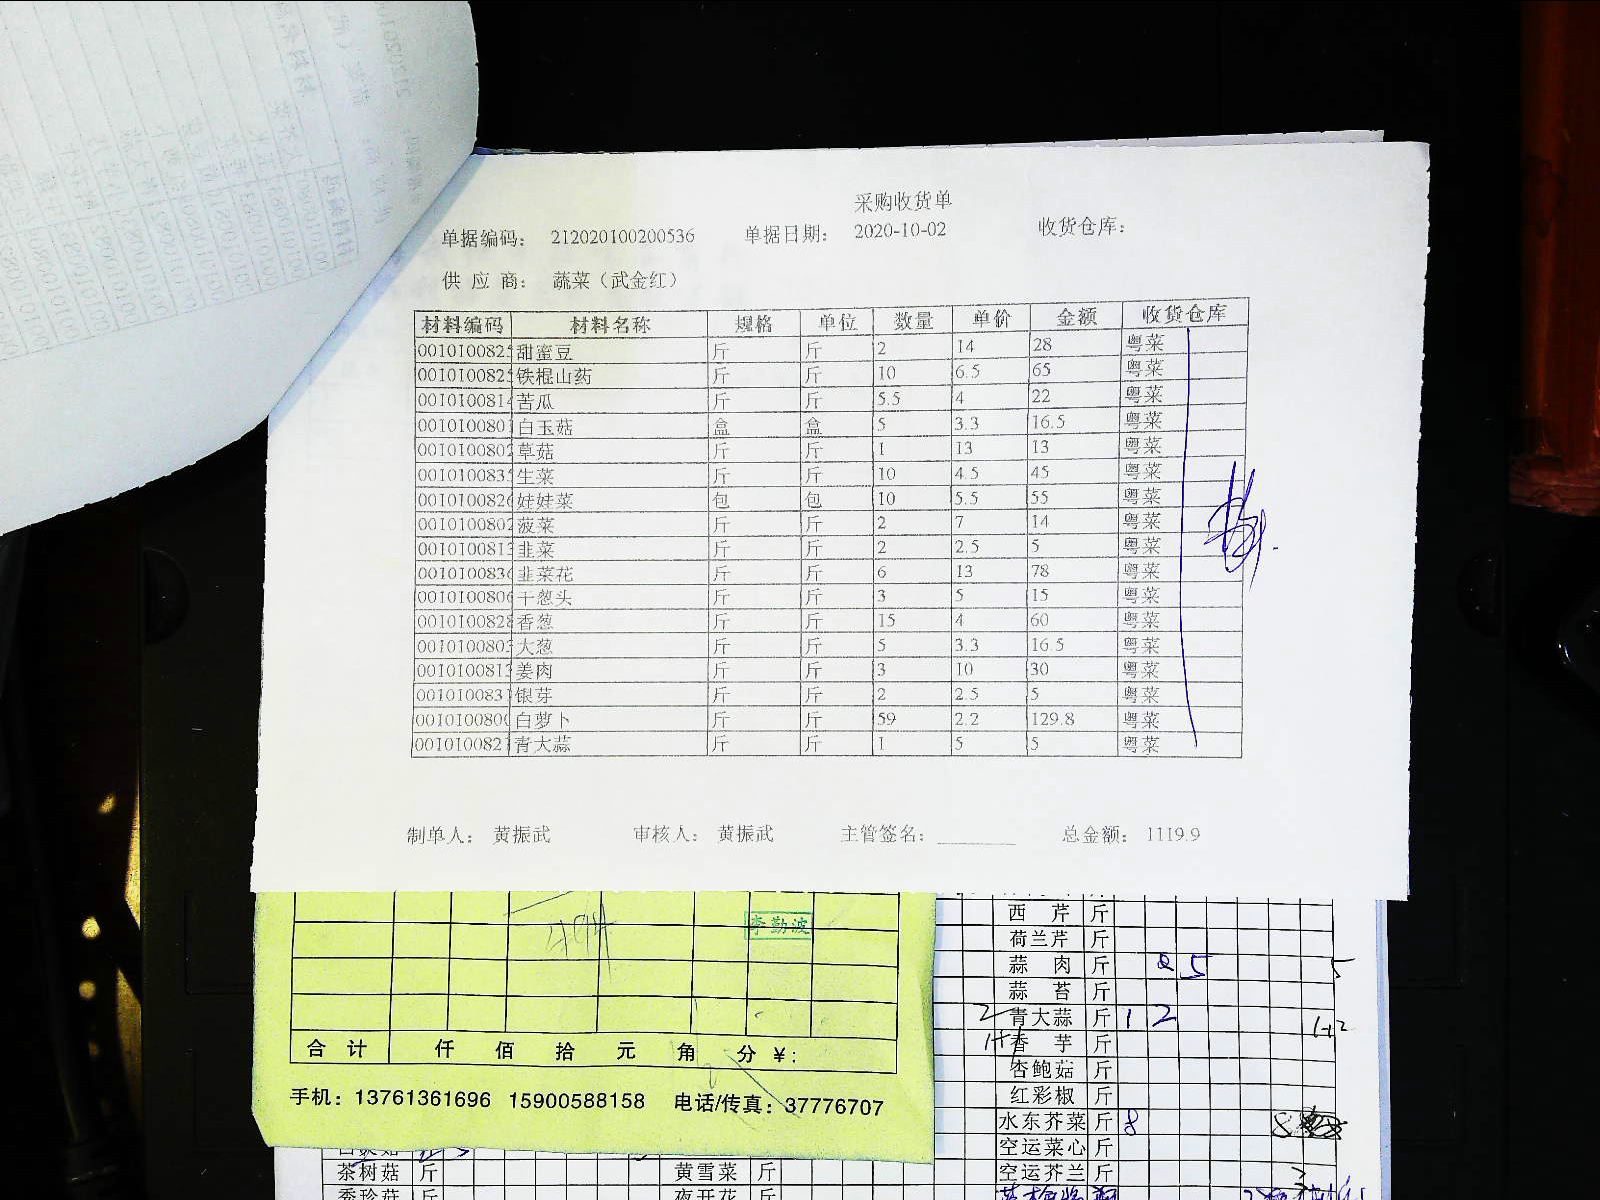 采购收货单
单据编码： 212020100200536 单据日期： 2020-10-02 收货仓库：
供 应 商： 蔬菜（武金红）
材料编码 材料名称 规格 单位 数量 单价 金额 收货仓库
001010082 甜蜜豆 斤 斤 2 14 28 粤菜
001010082 铁棍山药 斤 斤 10 6.5 65 粤菜
001010081 苦瓜 斤 斤 5.5 4 22 粤菜
001010080 白玉菇 盒 盒 5 3.3 16.5 粤菜
001010080 草菇 斤 斤 1 13 13 粤菜
001010083 生菜 斤 斤 10 4.5 45 粤菜
001010082 娃娃菜 包 包 10 5.5 55 粤菜
001010080 菠菜 斤 斤 2 7 14 粤菜
001010081 韭菜 斤 斤 2 2.5 5 粤菜
001010083 韭菜花 斤 斤 6 13 78 粤菜
001010080 干葱头 斤 斤 3 5 15 粤菜
001010082 香葱 斤 斤 15 4 60 粤菜
001010080 大葱 斤 斤 5 3.3 16.5 粤菜
001010081 姜肉 斤 斤 3 10 30 粤菜
001010083 银芽 斤 斤 2 2.5 5 粤菜
001010080 白萝卜 斤 斤 59 2.2 129.8 粤菜
001010082 青大蒜 斤 斤 1 5 5 粤菜
制单人： 黄振武 审核人： 黄振武 主管签名： 总金额： 1119.9
李勤波
合 计 仟 佰 拾 元 角 分 ¥:
手机：13761361696 15900588158 电话/传真：37776707
西 芹 斤
荷兰芹 斤
蒜 肉 斤 5
蒜 苔 斤
青大蒜 斤 1 2
香 芋 斤
杏鲍菇 斤
红彩椒 斤
水东芥菜 斤 8
空运菜心 斤
空运芥兰 斤
茶树菇 斤 黄雪菜 斤
秀珍菇 斤 夜开花 斤